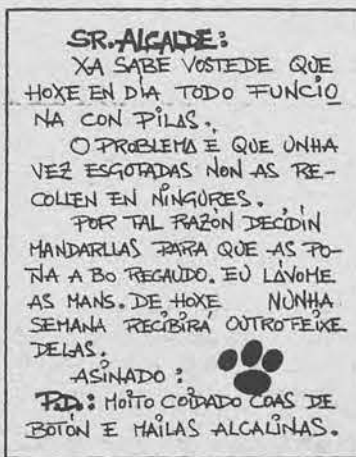 SR. ALCALDE:
XA SABE VOSTEDE QUE
HOXE EN DÍA TODO FUNCIO
NA CON PILAS.
O PROBLEMA E QUE UNHA
VEZ ESGOTADAS NON AS RE-
COLLEN EN NINGURES.
POR TAL RAZÓN DECIDÍN
MANDARLLAS PARA QUE AS PO-
ÑA A BO REGAUDO. EU LÁVOME
AS MANS. DE HOXE NUNHA
SEMANA RECIBIRÁ OUTRO FEIXE
DELAS.
ASINADO:
P.D.: MOITO COIDADO COAS DE
BOTÓN E MAILAS ALCALINAS.